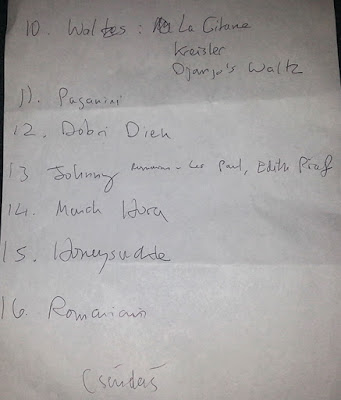 10. Waltzes: La Gitane
Kreisler
Django's Waltz
11. Paganini
12. Dobri Dien
13 Johnny Les Paul, Edith Piaf
14. March Hora
15. Honeysuckle
16. Romanian
Csárdás